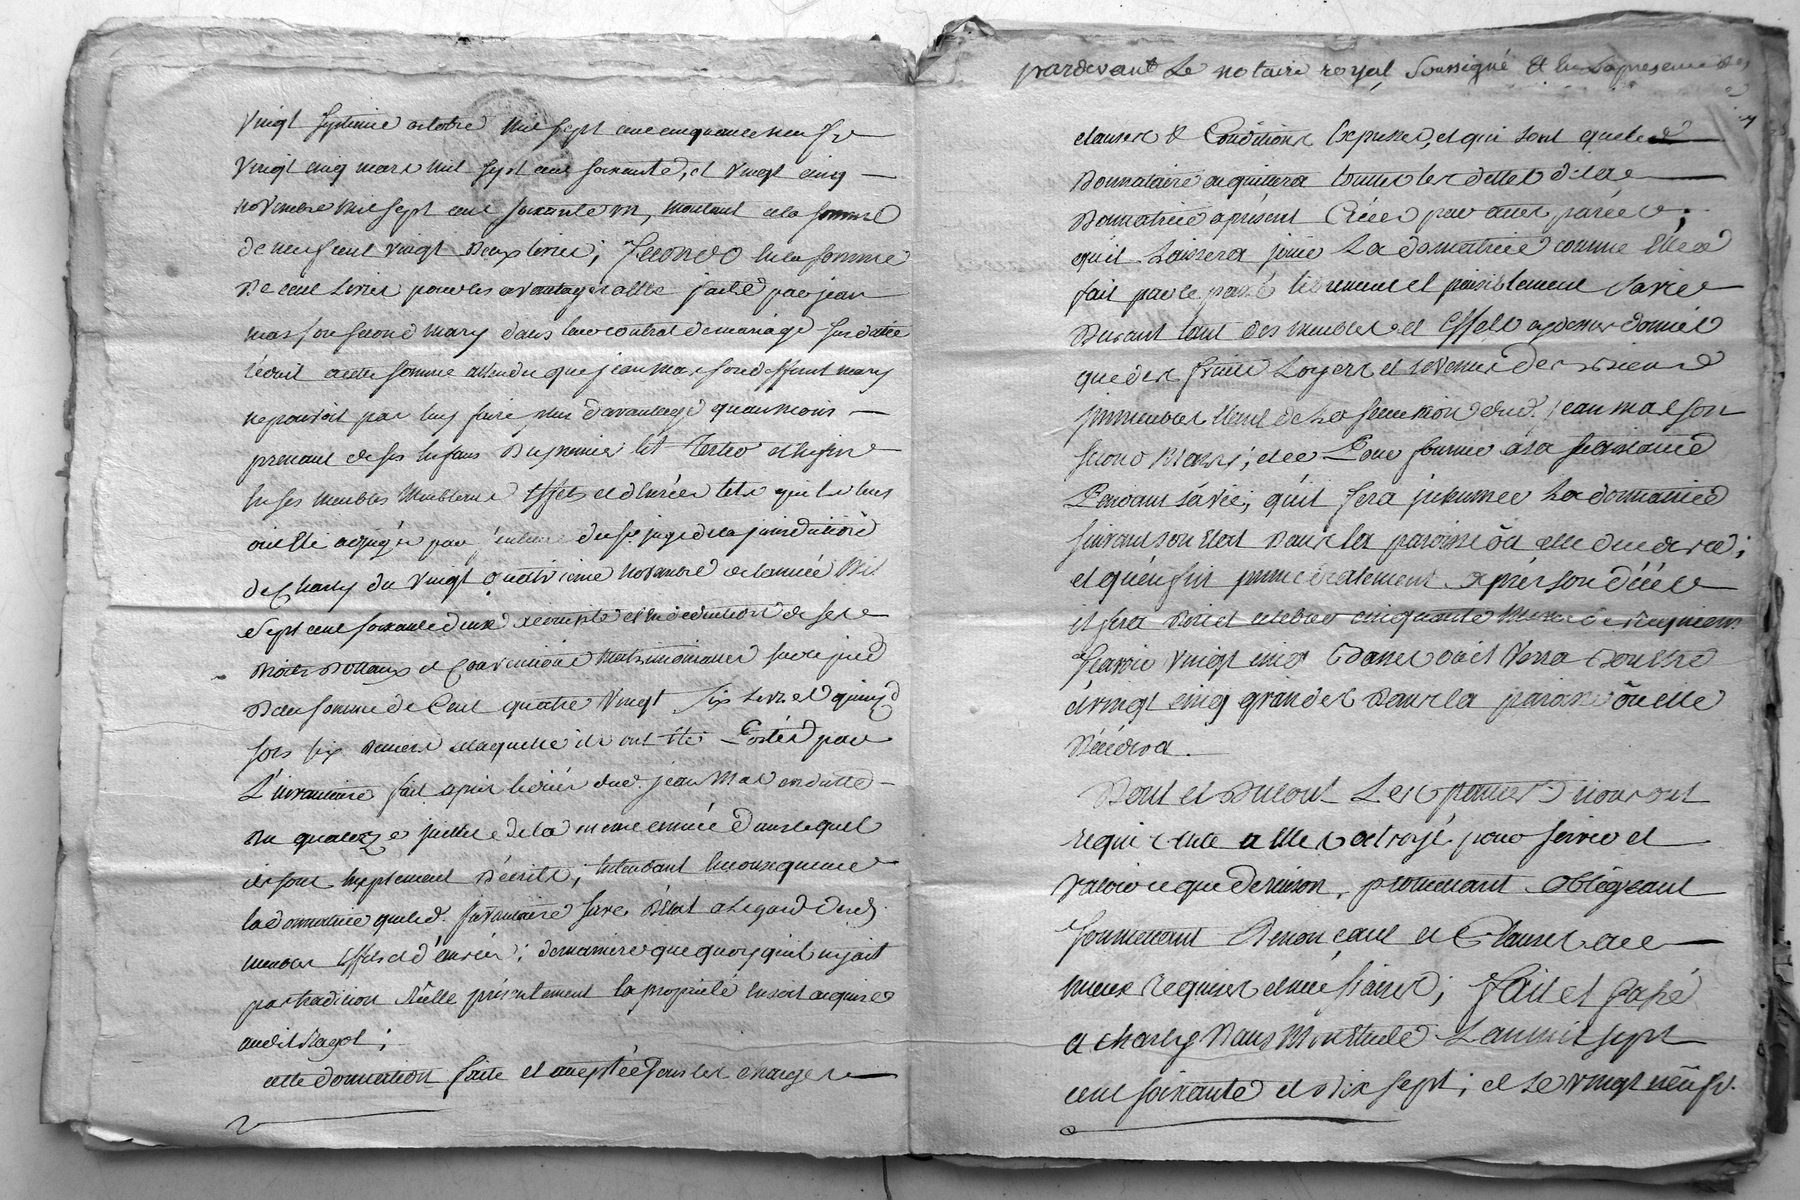 vingt septieme octobre mil sept cent cinquante neuf, &
vingt cinq mars mil sept cent soixante, et vingt cinq
novembre mil sept cent soixante un, montant a la somme
de neuf cent vingt deux livres; Secondo en la somme
de cent livres pour les avantages a elle faits par jean
mas son second mary dans leur contrat de mariage susdatté
réduit a cette somme attendu que jean mas son deffunt mary
ne pouvoit pas luy faire plus d'avantage qu'au moins
prenant de ses enfans du premier lit Tertio et enfin
en ses meubles meublants effets et denrées tels qu'ils luy
ont été adjugés par sr juge de la juridiction
de Charly du vingt quatrieme novembre de l'année mil
sept cent soixante deux a compte et en deduction de ses
droits dottaux et conventions matrimoniales sur le pied
de la somme de Cent quatre vingt six livres quinze
sols six deniers a laquelle ils ont été Portés par
L'inventaire fait apres le décès dud. jean Mas en datte
du quatorze juillet de la même année dans lequel
ils sont amplement décrits; entendant en consequence
la donnatrice que led. Inventaire serve d'Etat a l'egard desd.
meubles effets et denrées; de maniere que quoy qu'il n'y ait
pas tradition réelle présentement la propriété en soit acquise
audit Ragot;
cette donnation faite et acceptée sous les charges
pardevant Le notaire royal Soussigné Et en la presence des
clauses & Conditions Expresses, et qui sont que led.
Donnataire acquittera touttes les dettes de lad.
Donnatrice a présent Créées par actes parées;
qu'il Laissera jouir La donnatrice comme Elle a
fait par le passé librement et paisiblement sa vie
Durant tant des meubles et Effets cy dessus donnés
que des fruits Loyers et revenus des biens
immeubles de La succession dud. jean mas son
second Mary; et ce Pour fournir a sa subsistance
Pendant sa vie; qu'il fera inhumer La donnatrice
suivant son Etat dans la paroisse où elle decedera;
et qu'enfin immediatement après son décès
il fera dire et celebrer cinquante Messes de requiem
sçavoir vingt cinq Basses
et vingt cinq grandes dans la paroisse où elle
décédera.
Dont et du tout Les parties nous ont
requis acte a elles octroyé pour servir et
valoir ce que de raison, promettant obligeant
soumettant renonçant et Clauses a ce
mieux requises et nécessaires; Fait et Passé
a Charly dans Mon Etude L'an mil sept
cent soixante et dix sept; et Le vingt neuf